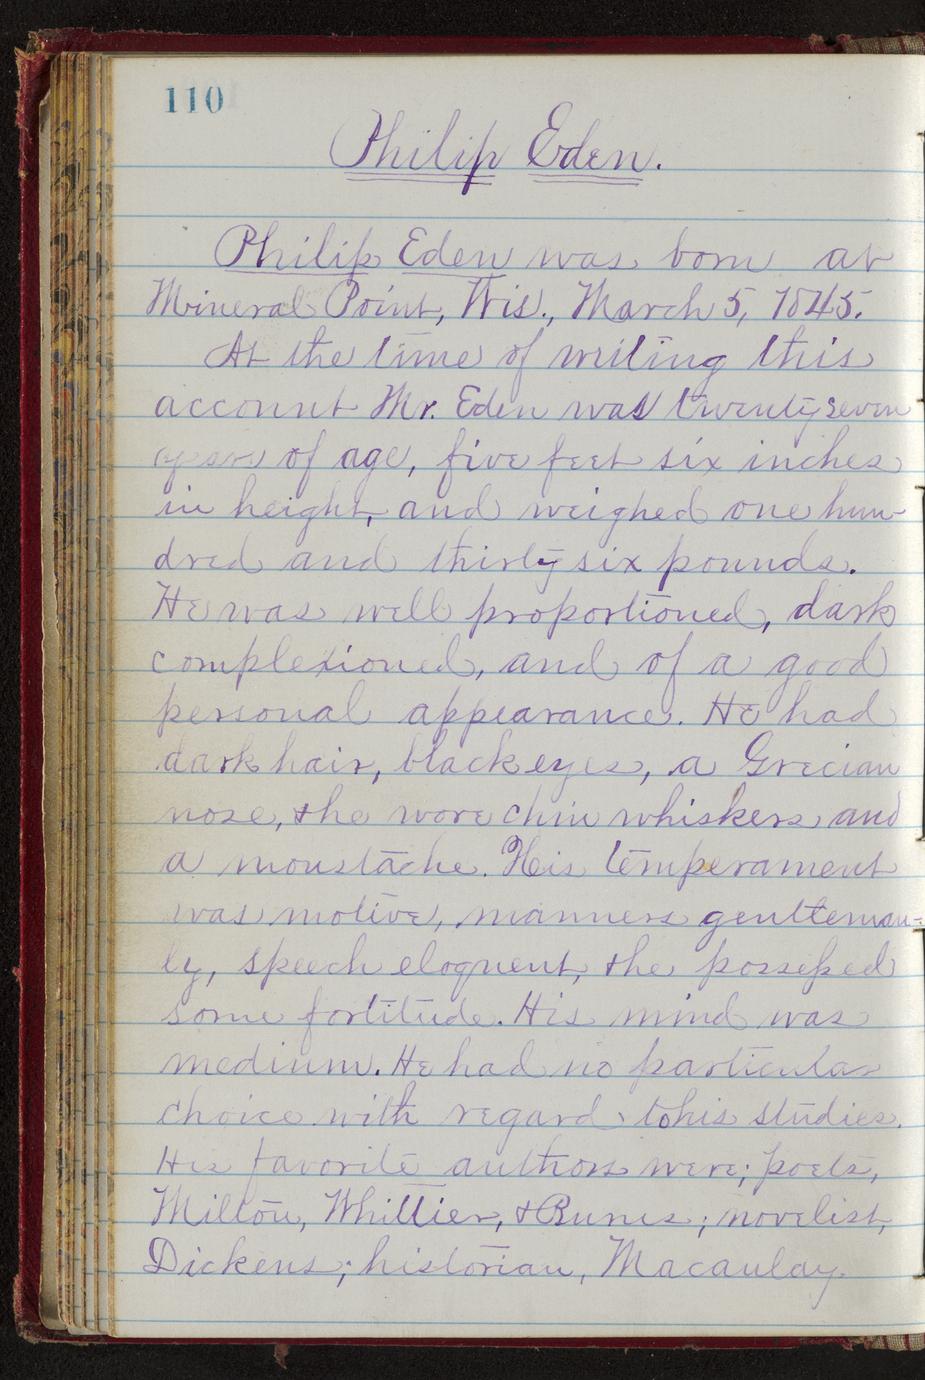 110
Philip Eden.
Philip Eden was born at
Mineral Point, Wis., March 5, 1845.
At the time of writing this
account Mr. Eden was twenty seven
years of age, five feet six inches
in height, and weighed one hun-
dred and thirty six pounds.
He was well proportioned, dark
complexioned, and of a good
personal appearance. He had
dark hair, black eyes, a Grecian
nose, & he wore chin whiskers and
a moustache. His temperament
was motive, manners gentleman-
ly, speech eloquent, & he possessed
some fortitude. His mind was
medium. He had no particular
choice with regard to his studies.
His favorite authors were; poets,
Milton, Whittier, & Burns; novelist,
Dickens; historian, Macaulay.